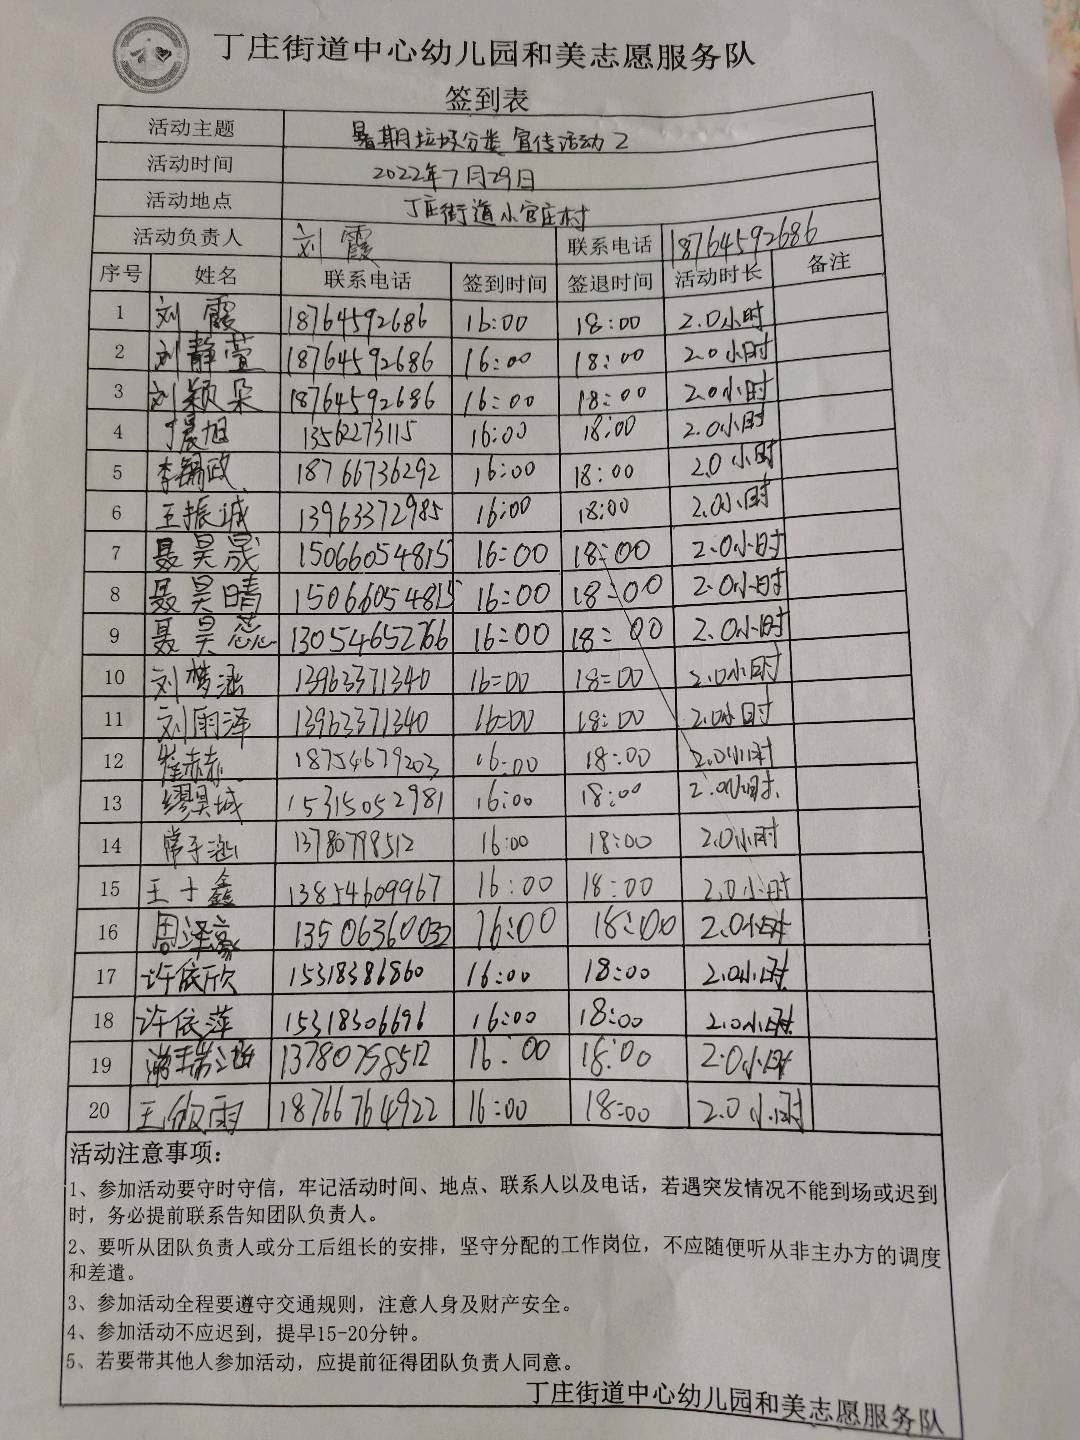 丁庄街道中心幼儿园和美志愿服务队
签到表
活动主题 暑期垃圾分类宣传活动2
活动时间 2022年7月29日
活动地点 丁庄街道小官庄村
活动负责人 刘霞 联系电话 18764592686
序号 姓名 联系电话 签到时间 签退时间 活动时长 备注
1 刘霞 18764592686 16:00 18:00 2.0小时
2 刘静萱 18764592686 16:00 18:00 2.0小时
3 刘颖朵 18764592686 16:00 18:00 2.0小时
4 丁晨旭 13562273115 16:00 18:00 2.0小时
5 李锡政 18766736292 16:00 18:00 2.0小时
6 王振诚 13963372985 16:00 18:00 2.0小时
7 聂昊晟 15066054815 16:00 18:00 2.0小时
8 聂昊晴 15066054815 16:00 18:00 2.0小时
9 聂昊芯 13054652766 16:00 18:00 2.0小时
10 刘梦涵 13963371340 16:00 18:00 2.0小时
11 刘雨泽 13963371340 16:00 18:00 2.0小时
12 崔赫赫 18754679203 16:00 18:00 2.0小时
13 缪昊城 15315052981 16:00 18:00 2.0小时
14 常子涵 13780798512 16:00 18:00 2.0小时
15 王士鑫 13854609967 16:00 18:00 2.0小时
16 周泽豪 13506360032 16:00 18:00 2.0小时
17 许依欣 15318386860 16:00 18:00 2.0小时
18 许依萍 15318306696 16:00 18:00 2.0小时
19 13780758512 16:00 18:00 2.0小时
20 王 雨 18766764922 16:00 18:00 2.0小时
活动注意事项：
1、参加活动要守时守信，牢记活动时间、地点、联系人以及电话，若遇突发情况不能到场或迟到
时，务必提前联系告知团队负责人。
2、要听从团队负责人或分工后组长的安排，坚守分配的工作岗位，不应随便听从非主办方的调度
和差遣。
3、参加活动全程要遵守交通规则，注意人身及财产安全。
4、参加活动不应迟到，提早15-20分钟。
5、若要带其他人参加活动，应提前征得团队负责人同意。
丁庄街道中心幼儿园和美志愿服务队